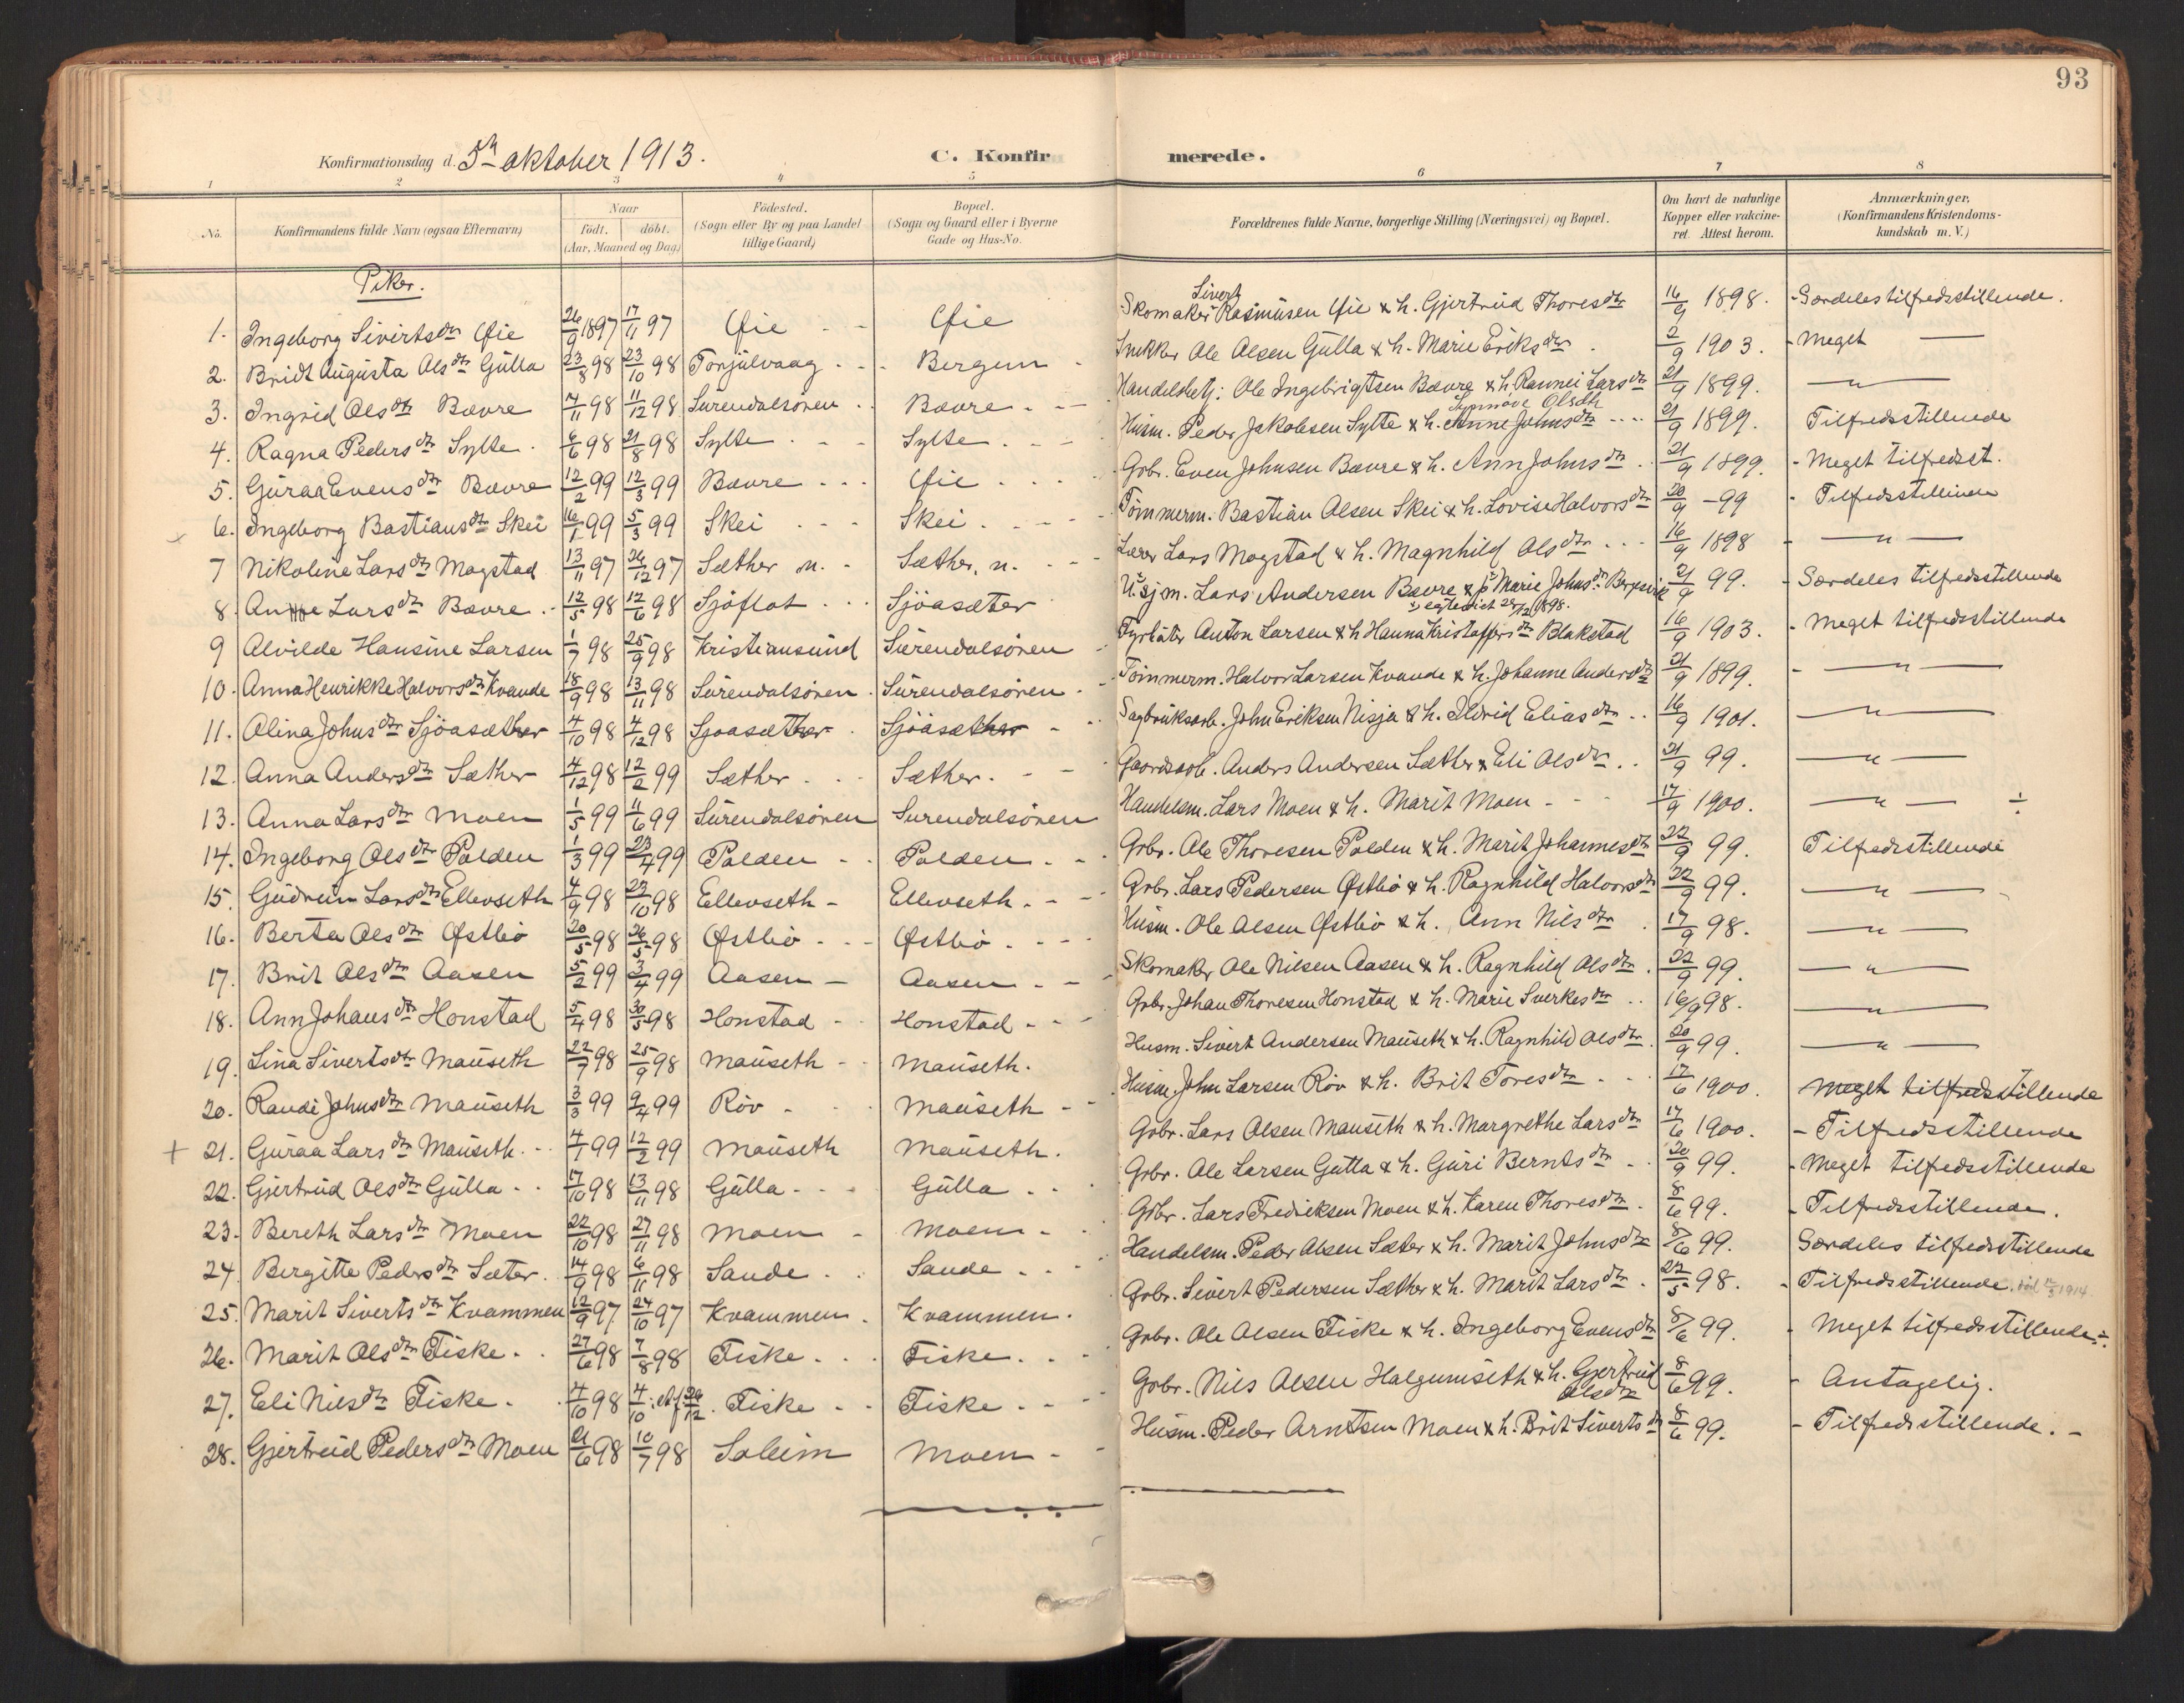 93
Konfirmationsdag d. 5te oktober 1913. C. Konfirmerede.
1 2 3 4 5 6 7 8
No. Konfirmandens fulde Navn (ogsaa Efternavn) Naar født. døbt. (Aar, Maaned og Dag) Fødested. (Sogn eller By og paa Landet tillige Gaard) Bopæl. (Sogn og Gaard eller i Byerne Gade og Hus-No. Forældrenes fulde Navne, borgerlige Stilling (Næringsvei) og Bopæl. Om havt de naturlige Kopper eller vakcineret. Attest herom. Anmærkninger. (Konfirmandens Kristendomskundskab m. V.)
Piker.
1. Ingeborg Siverts dtr Øie 26/9 1897 17/11 97 Øie Øie Skomaker Sivert Rasmusen Øie & h. Gjertrud Thores dtr 16/9 1898. Særdeles tilfredsstillende.
2. Bridt Augusta Ols dtr Gulla 23/8 98 23/10 98 Torjulvaag Bergem Snekker Ole Olsen Gulla & h. Marie Eriks dtr 2/9 1903. Meget —
3. Ingrid Ols dtr Bævre 7/11 98 11/12 98 Surendalsøren Bævre Handelsbetj: Ole Ingebrigtsen Bævre & h. Rannei Lars dtr 21/9 1899. —"—
4. Ragna Peders dtr Sylte 6/6 98 21/8 98 Sylte Sylte Husm. Peder Jakobsen Sylte & h. Anne Johns dtr Synnøve Olsdtr 21/9 1899. Tilfredsstillende
5. Guraa Evens dtr Bævre 12/2 99 12/3 99 Bævre Øie Gbr. Even Johnsen Bævre & h. Ann Johns dtr 21/9 1899. Meget tilfredsst.
6. Ingeborg Bastians dtr Skei 16/1 99 5/3 99 Skei Skei Tømmerm. Bastian Olsen Skei & h. Lovise Halvors dtr 20/9 - 99 Tilfredsstillende
7 Nikoline Lars dtr Mogstad 13/11 97 26/12 97 Sæther n. Sæther, n. Lærer Lars Mogstad & h. Magnhild Ols dtr 16/9 1898 —"—
8. Anne Lars dtr Bævre 12/5 98 12/6 98 Sjøflot Sjøasæter U. sjm. Lars Andersen Bævre & p. Marie Johns dtr 21/9 99. Særdeles tilfredsstillende
egteviet 28/12 1898.
9 Alvilde Hansine Larsen 1/7 98 25/9 98 Kristiansund Surendalsøren Fyrbøter Anton Larsen & h Hanna Kristoffers dtr Blakstad 16/9 1903. Meget tilfredsstillende
10. Anna Henrikke Halvors dtr Kvande 18/9 98 13/11 98 Surendalsøren Surendalsøren Tømmerm. Halvor Larsen Kvande & h. Johanne Anders dtr 21/9 1899. —"—
11. Olina Johns dtr Sjøasæther 4/10 98 4/12 98 Sjøasæther Sjøasæther Sagbruksarb. John Eriksen Nisja & h. Ildrid Elias dtr 16/9 1901. —"—
12. Anna Anders dtr Sæther 4/12 98 12/2 99 Sæther Sæther Gaardsarb. Anders Andersen Sæther & Eli Ols dtr 21/9 99. —"—
13. Anna Lars dtr Moen 1/5 99 11/6 99 Surendalsøren Surendalsøren Handelsm. Lars Moen & h. Marit Moen 17/9 1900. —"— ÷
14. Ingeborg Ols dtr Polden 1/3 99 23/4 99 Polden Polden Gbr. Ole Thoresen Polden & h. Marit Johannes dtr 22/9 99. Tilfredsstillende
15. Gudrun Lars dtr Ellevseth 4/9 98 23/10 98 Ellevseth Ellevseth Gbr. Lars Pedersen Østbø & h. Ragnhild Halvors dtr 22/9 99. —"—
16. Berta Ols dtr Østbø 20/5 98 26/5 98 Østbø Østbø Husm. Ole Olsen Østbø & h. Ann Nils dtr 17/9 98. —"—
17. Brit Ols dtr Aasen 5/2 99 3/4 99 Aasen Aasen Skomaker Ole Nilsen Aasen & h. Ragnhild Ols dtr 22/9 99. —"—
18. Ann Johans dtr Honstad 5/4 98 30/5 98 Honstad Honstad Gbr. Johan Thoresen Honstad & h. Marie Sverkes dtr 16/9 98. —"—
19. Lina Siverts dtr Mauseth 22/7 98 25/9 98 Mauseth Mauseth. Husm. Sivert Andersen Mauseth & h. Ragnhild Ols dtr 20/9 99. —"—
20. Randi Johns dtr Mauseth 3/3 99 9/4 99 Røv Mauseth Husm. John Larsen Røv & h. Brit Tores dtr 17/6 1900. Meget tilfredsstillende
+ 21. Guraa Lars dtr Mauseth 4/1 99 12/2 99 Mauseth Mauseth. Gbr. Lars Olsen Mauseth & h. Margrethe Lars dtr 17/6 1900. Tilfredsstillende
22. Gjertrud Ols dtr Gulla 17/10 98 13/11 98 Gulla Gulla Gbr. Ole Larsen Gulla & h. Guri Bernts dtr 20/9 99. Meget tilfredsstillende
23. Bereth Lars dtr Moen 22/10 98 27/11 98 Moen Moen Gbr. Lars Fredriksen Moen & h. Karen Thores dtr 8/6 99. Tilfredsstillende.
24. Bergitte Peders dtr Sæter 14/9 98 6/11 98 Sande Sande Handelsm. Peder Olsen Sæter & h. Marit Johns dtr 8/6 99. Særdeles tilfredsstillende
25. Marit Siverts dtr Kvammen 12/9 97 24/10 97 Kvammen Kvammen. Gbr. Sivert Pedersen Sæther & h. Marit Lars dtr 22/5 98. Tilfredsstillende 1914
26. Marit Ols dtr Fiske 27/6 98 7/8 98 Fiske Fiske Gbr. Ole Olsen Fiske & h. Ingeborg Evens dtr 8/6 99. Meget tilfredsstillende ÷
27. Eli Nils dtr Fiske 4/10 98 4/10 26/12 Fiske Fiske Gbr. Nils Olsen Halgunseth & h. Gjertrud Ols dtr 8/6 99. Antagelig.
28. Gjertrud Peders dtr Moen 21/6 98 10/7 98 Solem Moen Husm. Peder Arntsen Moen & h. Brit Siverts dtr 8/6 99. Tilfredsstillende.